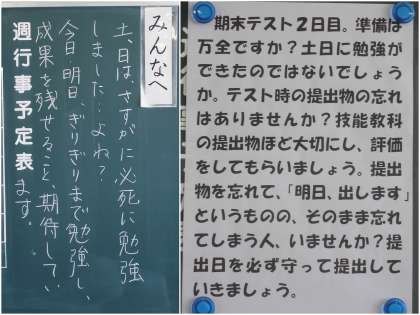 みんなへ
土、日は、さすがに必死に勉強
しました…よね？
今日・明日、ぎりぎりまで勉強し、
成果を残せること、期待してい
ます。
週行事予定表
期末テスト２日目。準備は
万全ですか？土日に勉強が
できたのではないでしょう
か。テスト時の提出物の忘れ
はありませんか？技能教科
の提出物ほど大切にし、評価
をしてもらいましょう。提出
物を忘れて、「明日、出します」
というものの、そのまま忘れ
てしまう人、いませんか？提
出日を必ず守って提出して
いきましょう。